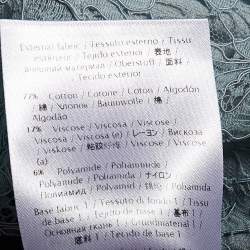 External fabric / Tessuto esterno / Tissu
extérieur / Tejido exterior / 表地
/ Oberstoff / 面料 /
Tecido exterior
77% Cotton / Cotone / Coton / Algodón
/ 綿 / / Baumwolle / 棉 /
Algodão
17% Viscose / Viscosa / Viscose /
Viscosa / Viscosa (e) / レーヨン / Вискоза
/ Viskose / / Viscose / Viscose
(a)
6% Polyamide / Poliammide /
Polyamide / Poliamida / ナイロン
/ Polyamid / / Poliamida
Base fabric 1 / Tessuto di fondo 1 / Tissu
de base 1 / Tejido de base 1 / 基布 1 /
Основная ткань 1 / Grundstoff 1 /
底料 1 / Tecido de base 1